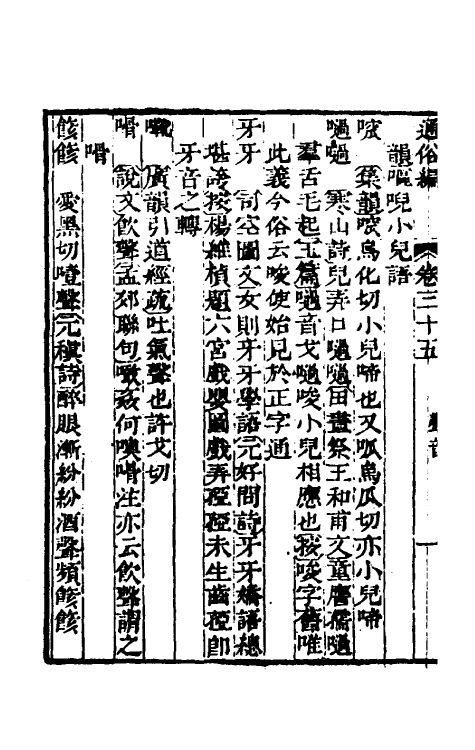 通俗編 卷三十五 聲音 一
韻嘔唲小兒語
集韻 烏化切小兒啼也又呱烏瓜切亦小兒啼
㗻㗻 寒山詩兒弄口㗻㗻田晝祭王和甫文童膺儒㗻
羣舌毛起玉篇㗻音戈㗻唆小兒相應也按唆字舊唯
此義今俗云唆使始見於正字通
牙牙 司空圖文女則牙牙學語元好問詩牙牙嬌語總
堪誇按楊維楨題六宮戲嬰圖戲弄啞啞未生齒啞卽
牙音之轉
廣韻引道經疏吐氣聲也許戈切
嗗 說文飲聲孟郊聯句 何噢嗗注亦云飲聲謂之
嗗
餩餩 愛黑切噎聲元稹詩醉眼漸紛紛酒聲頻餩餩